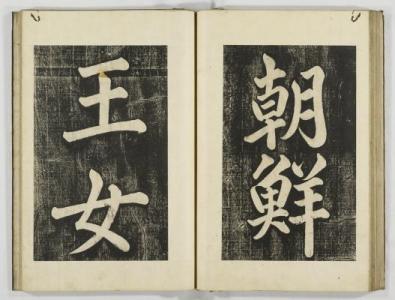 朝鮮
王女